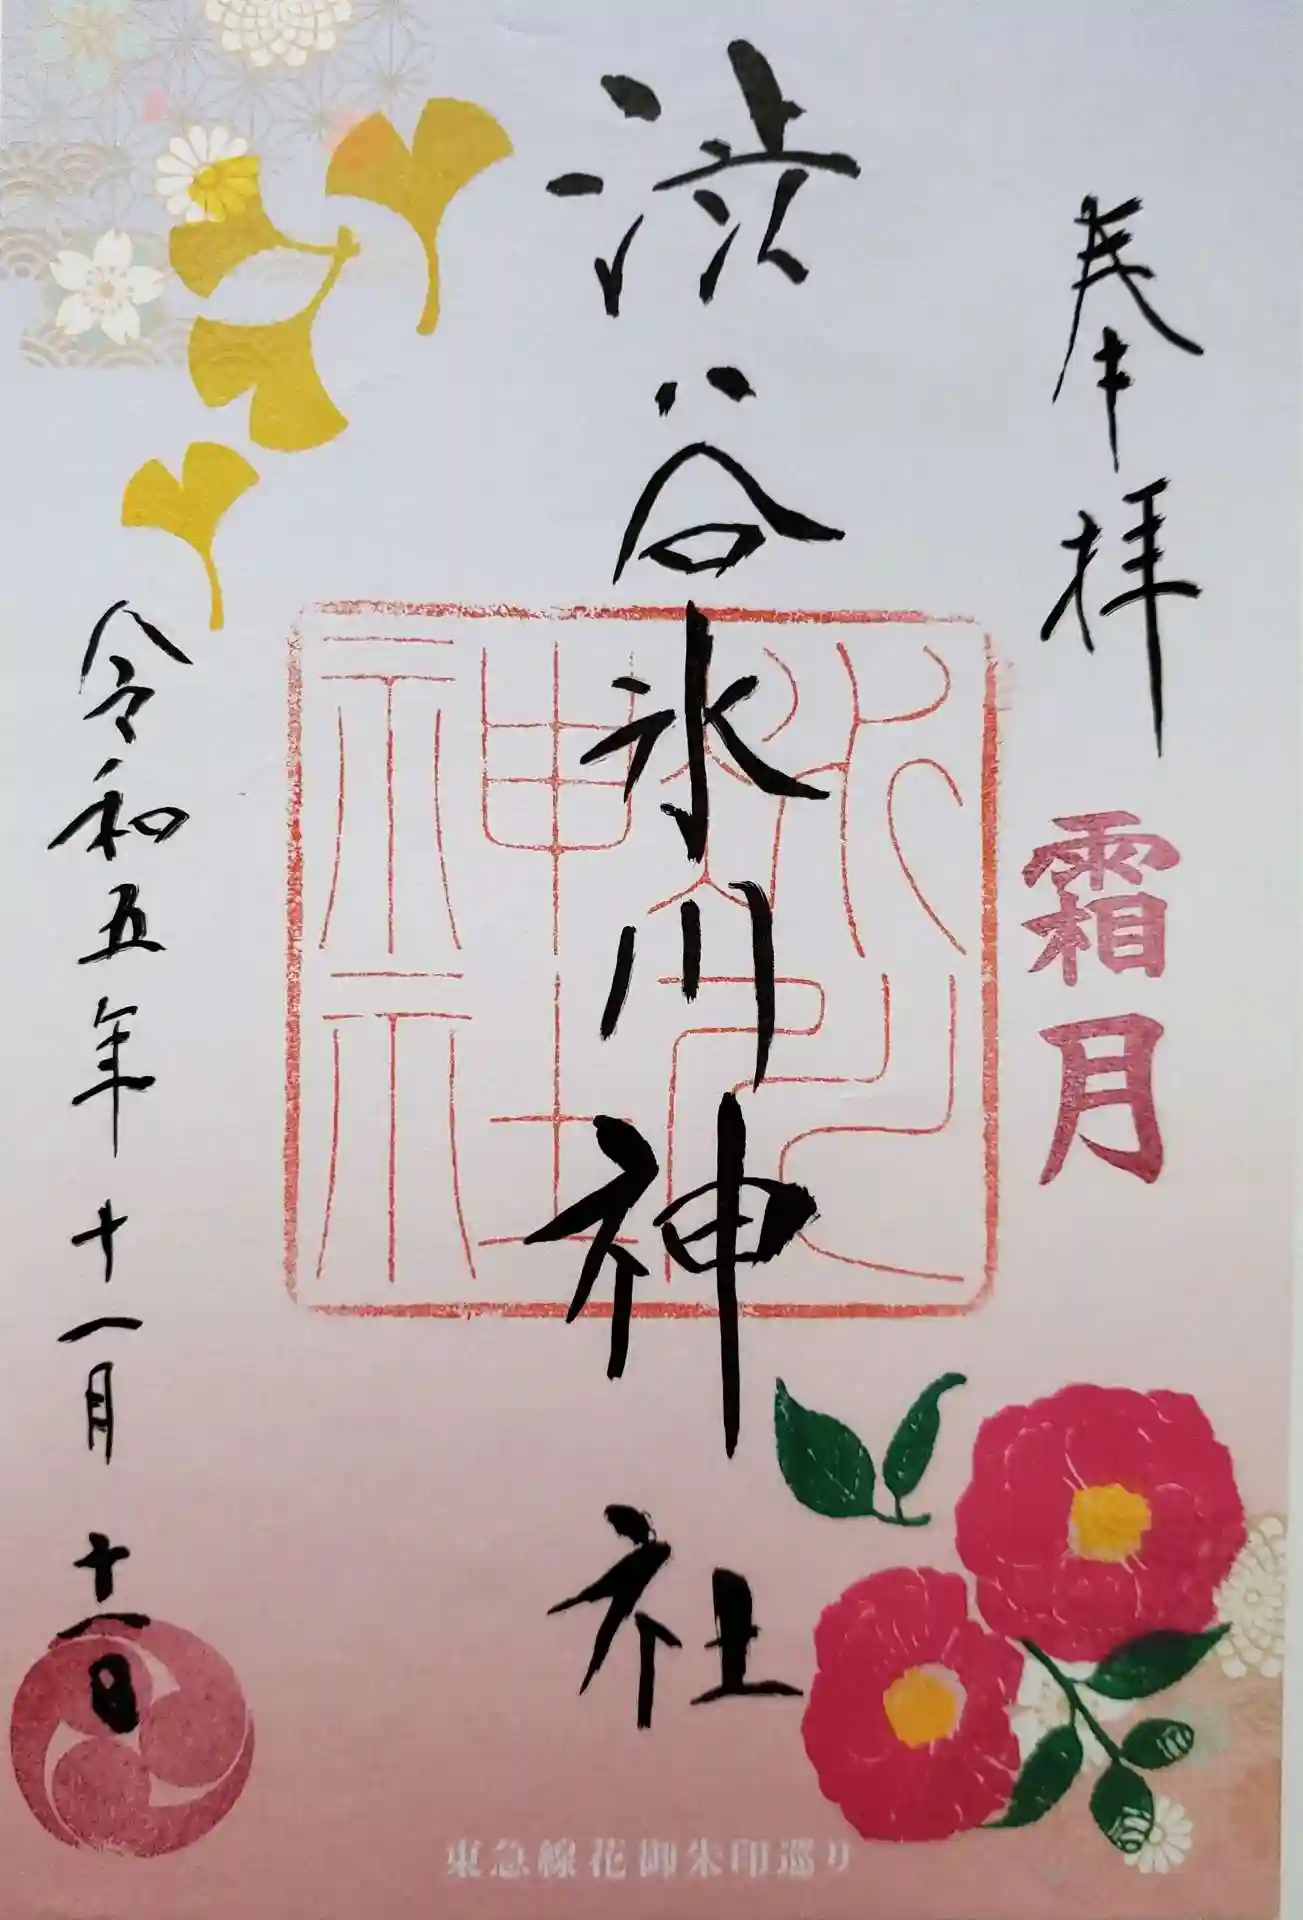 奉拝
霜月
渋谷氷川神社
氷川神社
令和五年十一月十一日
東急線花御朱印巡り